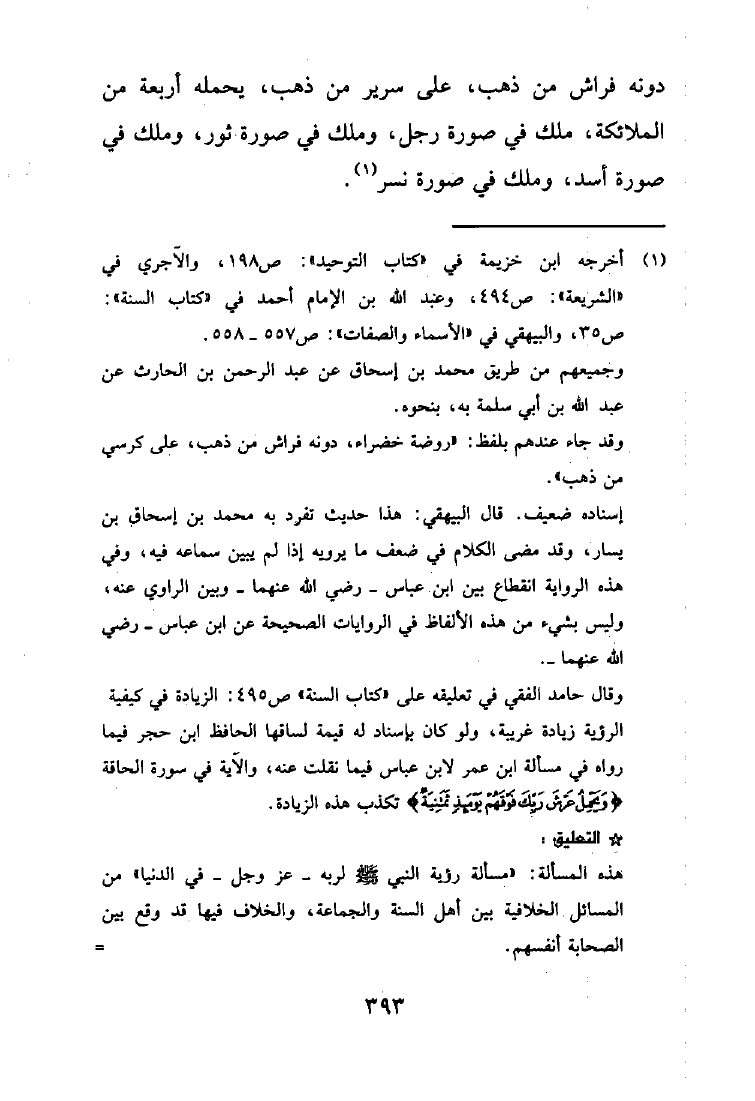 دونه فراش من ذهب، على سرير من ذهب، يحمله أربعة من
الملائكة، ملك في صورة رجل، وملك في صورة ثور، وملك في
صورة أسد، وملك في صورة نسر(١).
(١) أخرجه ابن خزيمة في «كتاب التوحيد»: ص١٩٨، والآجري في
«الشريعة»: ص٤٩٤، وعبد الله بن الإمام أحمد في «كتاب السنة»:
ص٣٥، والبيهقي في «الأسماء والصفات»: ص٥٥٧ ـ ٥٥٨.
وجميعهم من طريق محمد بن إسحاق عن عبد الرحمن بن الحارث عن
عبد الله بن أبي سلمة به، بنحوه.
وقد جاء عندهم بلفظ: «روضة خضراء، دونه فراش من ذهب، على كرسي
من ذهب».
إسناده ضعيف. قال البيهقي: هذا حديث تفرد به محمد بن إسحاق بن
يسار، وقد مضى الكلام في ضعف ما يرويه إذا لم يبين سماعه فيه، وفي
هذه الرواية انقطاع بين ابن عباس ـ رضي الله عنهما ـ وبين الراوي عنه،
وليس بشيء من هذه الألفاظ في الروايات الصحيحة عن ابن عباس ـ رضي
الله عنهما ـ.
وقال حامد الفقي في تعليقه على «كتاب السنة» ص٤٩٥: الزيادة في كيفية
الرؤية زيادة غريبة، ولو كان بإسناد له قيمة لساقها الحافظ ابن حجر فيما
رواه في مسألة ابن عمر لابن عباس فيما نقلت عنه، والآية في سورة الحاقة
﴿وَيَحْمِلُ عَرْشَ رَبِّكَ فَوْقَهُمْ يَوْمَئِذٍ ثَمَٰنِيَةٌ﴾ تكذب هذه الزيادة.
☆ التعليق:
هذه المسألة: «مسألة رؤية النبي ﷺ لربه ـ عز وجل ـ في الدنيا» من
المسائل الخلافية بين أهل السنة والجماعة، والخلاف فيها قد وقع بين
الصحابة أنفسهم. =
٣٩٣